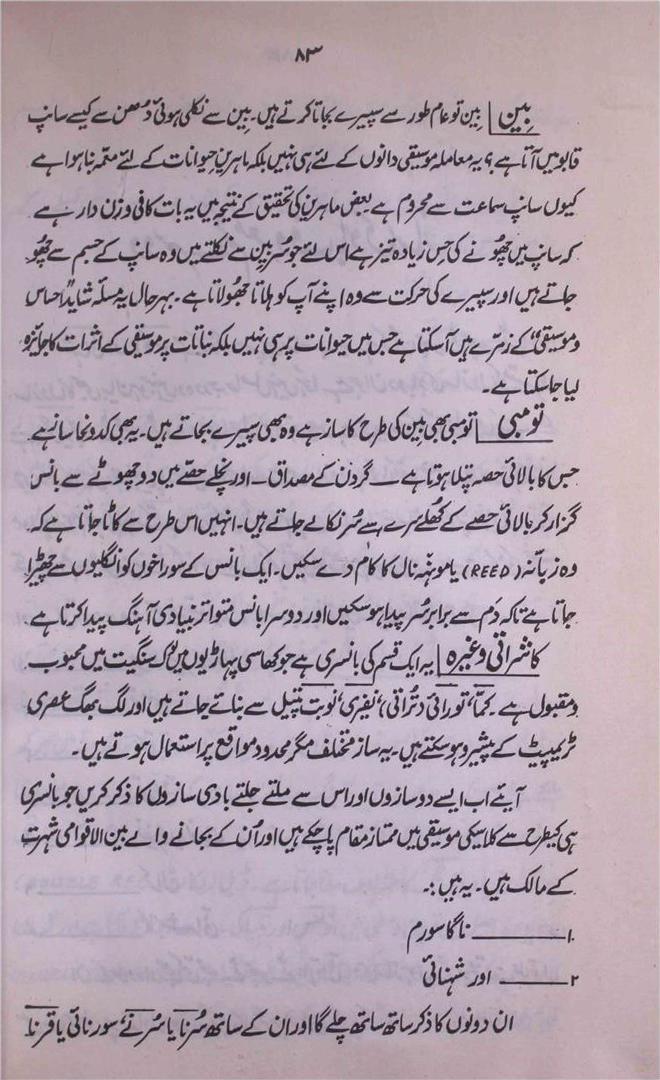 ۸۳
بین | بین تو عام طور سے سپیرے بجاتا کرتے ہیں۔ بین سے نکلی ہوئی دُھن سے کیسے سانپ
قابو میں آتا ہے؟ یہ معاملہ موسیقی دانوں کے لئے ہی نہیں بلکہ ماہرینِ حیوانات کے لئے معمّہ بنا ہوا ہے
کیوں سانپ سماعت سے محروم ہے بعض ماہرین کی تحقیق کے نتیجہ میں یہ بات کافی وزن دار ہے
کہ سانپ میں چھونے کی حِس زیادہ تیز ہے اس لئے جو سُر بین سے نکلتے ہیں وہ سانپ کے جسم سے چھو
جاتے ہیں اور سپیرے کی حرکت سے وہ اپنے آپ کو ہلاتا جھولاتا ہے۔ بہر حال یہ مسئلہ شاید "احساس
و موسیقی" کے زمرے میں آ سکتا ہے جس میں حیوانات پر ہی نہیں بلکہ نباتات پر موسیقی کے اثرات کا جائزہ
لیا جا سکتا ہے۔
تومبی | تومبی بھی بین کی طرح کا ساز ہے وہ بھی سپیرے بجاتے ہیں۔ یہ بھی کدو نما ساز ہے
جس کا بالائی حصہ پتلا ہوتا ہے — گردن کے مصداق — اور نچلے حصّے میں دو چھوٹے سے بانس
گزار کر بالائی حصے کے کھُلے سرے سے سُر نکالے جاتے ہیں۔ انہیں اس طرح سے کاٹا جاتا ہے کہ
وہ زبانہ (REED) یا مونہہ نال کا کام دے سکیں۔ ایک بانس کے سوراخوں کو انگلیوں سے چھیڑا
جاتا ہے تاکہ دَم سے برابر سُر پیدا ہو سکیں اور دوسرا بانس متواتر بنیادی آہنگ پیدا کرتا ہے۔
کانشراتی وغیرہ | یہ ایک قسم کی بانسری ہے جو کھاسی پہاڑیوں میں لوک سنگیت میں محبوب
و مقبول ہے۔ کمّا، تورائی، دتُراتی، نفیری، نوبت پیتل سے بنائے جاتے ہیں اور لگ بھگ عصری
ٹریمپیٹ کے پیشرو ہو سکتے ہیں۔ یہ ساز مختلف مگر محدود مواقع پر استعمال ہوتے ہیں۔
آیئے اب ایسے دو سازوں اور اس سے ملتے جلتے بادی سازوں کا ذکر کریں جو بانسری
ہی کیطرح سے کلاسکی موسیقی میں ممتاز مقام پا چکے ہیں اور اُن کے بجانے والے بین الاقوامی شہرت
کے مالک ہیں۔ یہ ہیں :۔
۱۔ ——— ناگا سورم
۲ ——— اور شہنائی
ان دونوں کا ذکر ساتھ ساتھ چلے گا اور ان کے ساتھ سُرنا یا سُرنے، سورنائی یا قرنا